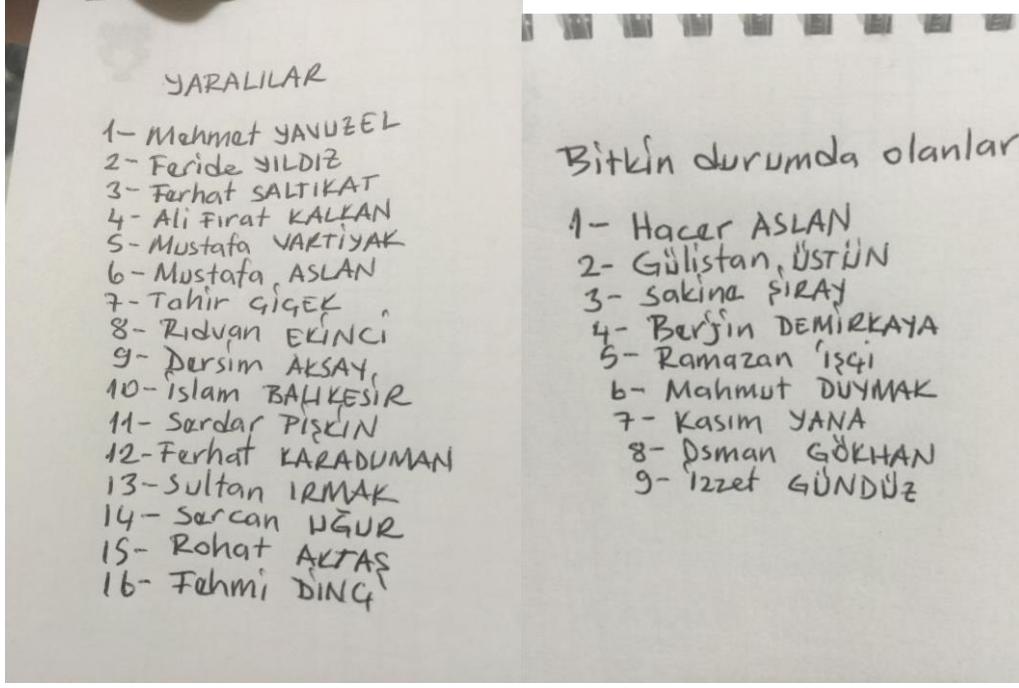 YARALILAR
1- Mehmet YAVUZEL
2- Feride YILDIZ
3- Ferhat SALTIKAT
4- Ali Fırat KALKAN
5- Mustafa VARTİYAK
6- Mustafa ASLAN
7- Tahir ÇİÇEK
8- Rıdvan EKİNCİ
9- Dersim AKSAY
10- İslam BALIKESİR
11- Serdar PİŞKİN
12- Ferhat KARADUMAN
13- Sultan IRMAK
14- Sercan UĞUR
15- Rohat AKTAŞ
16- Fehmi DİNÇ
Bitkin durumda olanlar
1- Hacer ASLAN
2- Gülistan ÜSTÜN
3- Sakine ŞIRAY
4- Berjin DEMİRKAYA
5- Ramazan İŞÇİ
6- Mahmut DUYMAK
7- Kasım YANA
8- Osman GÖKHAN
9- İzzet GÜNDÜZ